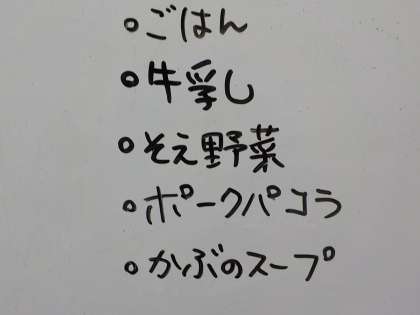 ○ごはん
○牛乳し
○そえ野菜
○ポークパコラ
○かぶのスープ